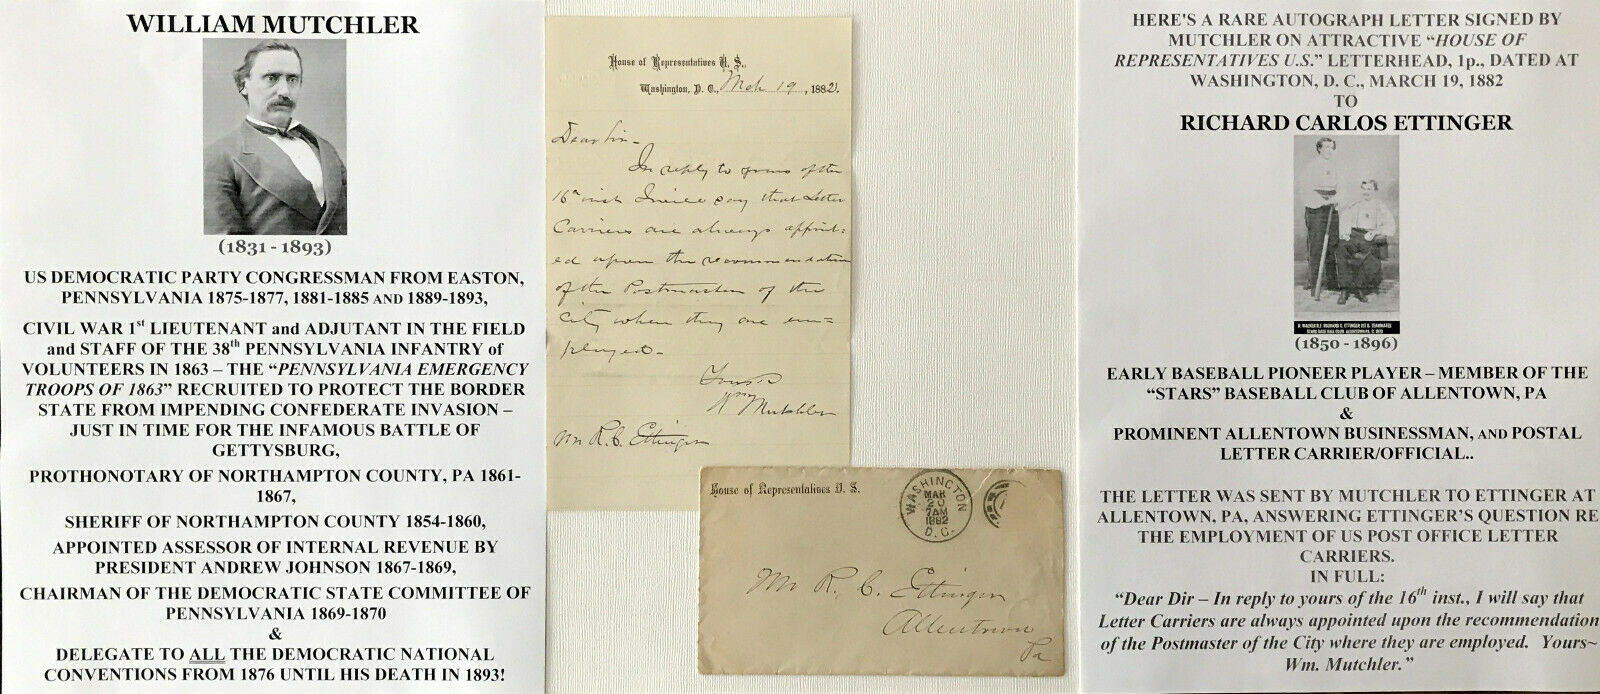 WILLIAM MUTCHLER
(1831 - 1893)
US DEMOCRATIC PARTY CONGRESSMAN FROM EASTON,
PENNSYLVANIA 1875-1877, 1881-1885 AND 1889-1893,
CIVIL WAR 1st LIEUTENANT and ADJUTANT IN THE FIELD
and STAFF OF THE 38th PENNSYLVANIA INFANTRY of
VOLUNTEERS IN 1863 – THE “PENNSYLVANIA EMERGENCY
TROOPS OF 1863” RECRUITED TO PROTECT THE BORDER
STATE FROM IMPENDING CONFEDERATE INVASION –
JUST IN TIME FOR THE INFAMOUS BATTLE OF
GETTYSBURG,
PROTHONOTARY OF NORTHAMPTON COUNTY, PA 1861-
1867,
SHERIFF OF NORTHAMPTON COUNTY 1854-1860,
APPOINTED ASSESSOR OF INTERNAL REVENUE BY
PRESIDENT ANDREW JOHNSON 1867-1869,
CHAIRMAN OF THE DEMOCRATIC STATE COMMITTEE OF
PENNSYLVANIA 1869-1870
&
DELEGATE TO ALL THE DEMOCRATIC NATIONAL
CONVENTIONS FROM 1876 UNTIL HIS DEATH IN 1893!
House of Representatives U. S.,
Washington, D. C., Mch 19, 1882.
Dear Sir –
In reply to yours of the
16th inst I will say that Letter
Carriers are always appoint=
ed upon the recommendation
of the Postmaster of the
City where they are em=
ployed –
Yours
Wm Mutchler
Mr R. C. Ettinger
House of Representatives U. S.
WASHINGTON
MAR
20
7AM
1882
D.C.
Mr R. C. Ettinger
Allentown
Pa
HERE'S A RARE AUTOGRAPH LETTER SIGNED BY
MUTCHLER ON ATTRACTIVE “HOUSE OF
REPRESENTATIVES U.S.” LETTERHEAD, 1p., DATED AT
WASHINGTON, D. C., MARCH 19, 1882
TO
RICHARD CARLOS ETTINGER
(1850 - 1896)
EARLY BASEBALL PIONEER PLAYER – MEMBER OF THE
“STARS” BASEBALL CLUB OF ALLENTOWN, PA
&
PROMINENT ALLENTOWN BUSINESSMAN, AND POSTAL
LETTER CARRIER/OFFICIAL..
THE LETTER WAS SENT BY MUTCHLER TO ETTINGER AT
ALLENTOWN, PA, ANSWERING ETTINGER’S QUESTION RE
THE EMPLOYMENT OF US POST OFFICE LETTER
CARRIERS.
IN FULL:
“Dear Dir – In reply to yours of the 16th inst., I will say that
Letter Carriers are always appointed upon the recommendation
of the Postmaster of the City where they are employed. Yours~
Wm. Mutchler.”